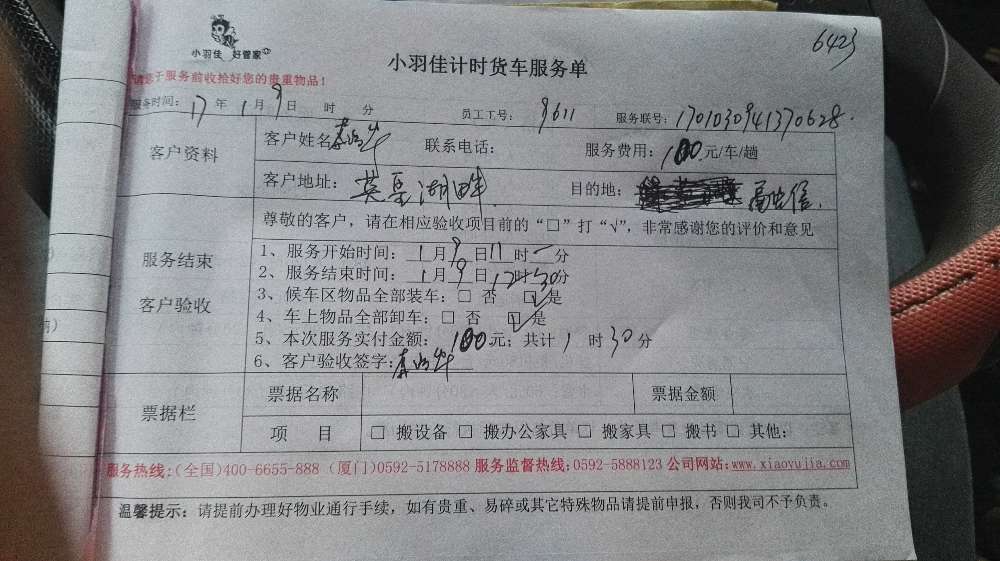 6423
小羽佳 好管家
小羽佳计时货车服务单
请您于服务前收拾好您的贵重物品！
服务时间：17年1月9日 时 分 员工工号：9611 服务联号：1701030941370628
客户资料
客户姓名 联系电话： 服务费用：100元/车/趟
客户地址： 湖畔 目的地：
尊敬的客户，请在相应验收项目前的“□”打“√”，非常感谢您的评价和意见
服务结束
客户验收
1、服务开始时间：1月9日11时一分
2、服务结束时间：1月9日12时30分
3、候车区物品全部装车：□ 否 ☑是
4、车上物品全部卸车：□ 否 ☑是
5、本次服务实付金额：100元；共计1时30分
6、客户验收签字：
票据栏
票据名称 票据金额
项 目 □ 搬设备 □ 搬办公家具 □ 搬家具 □ 搬书 □ 其他：
服务热线：(全国)400-6655-888 (厦门)0592-5178888 服务监督热线：0592-5888123 公司网站：www.xiaoyujia.com
温馨提示：请提前办理好物业通行手续，如有贵重、易碎或其它特殊物品请提前申报，否则我司不予负责。